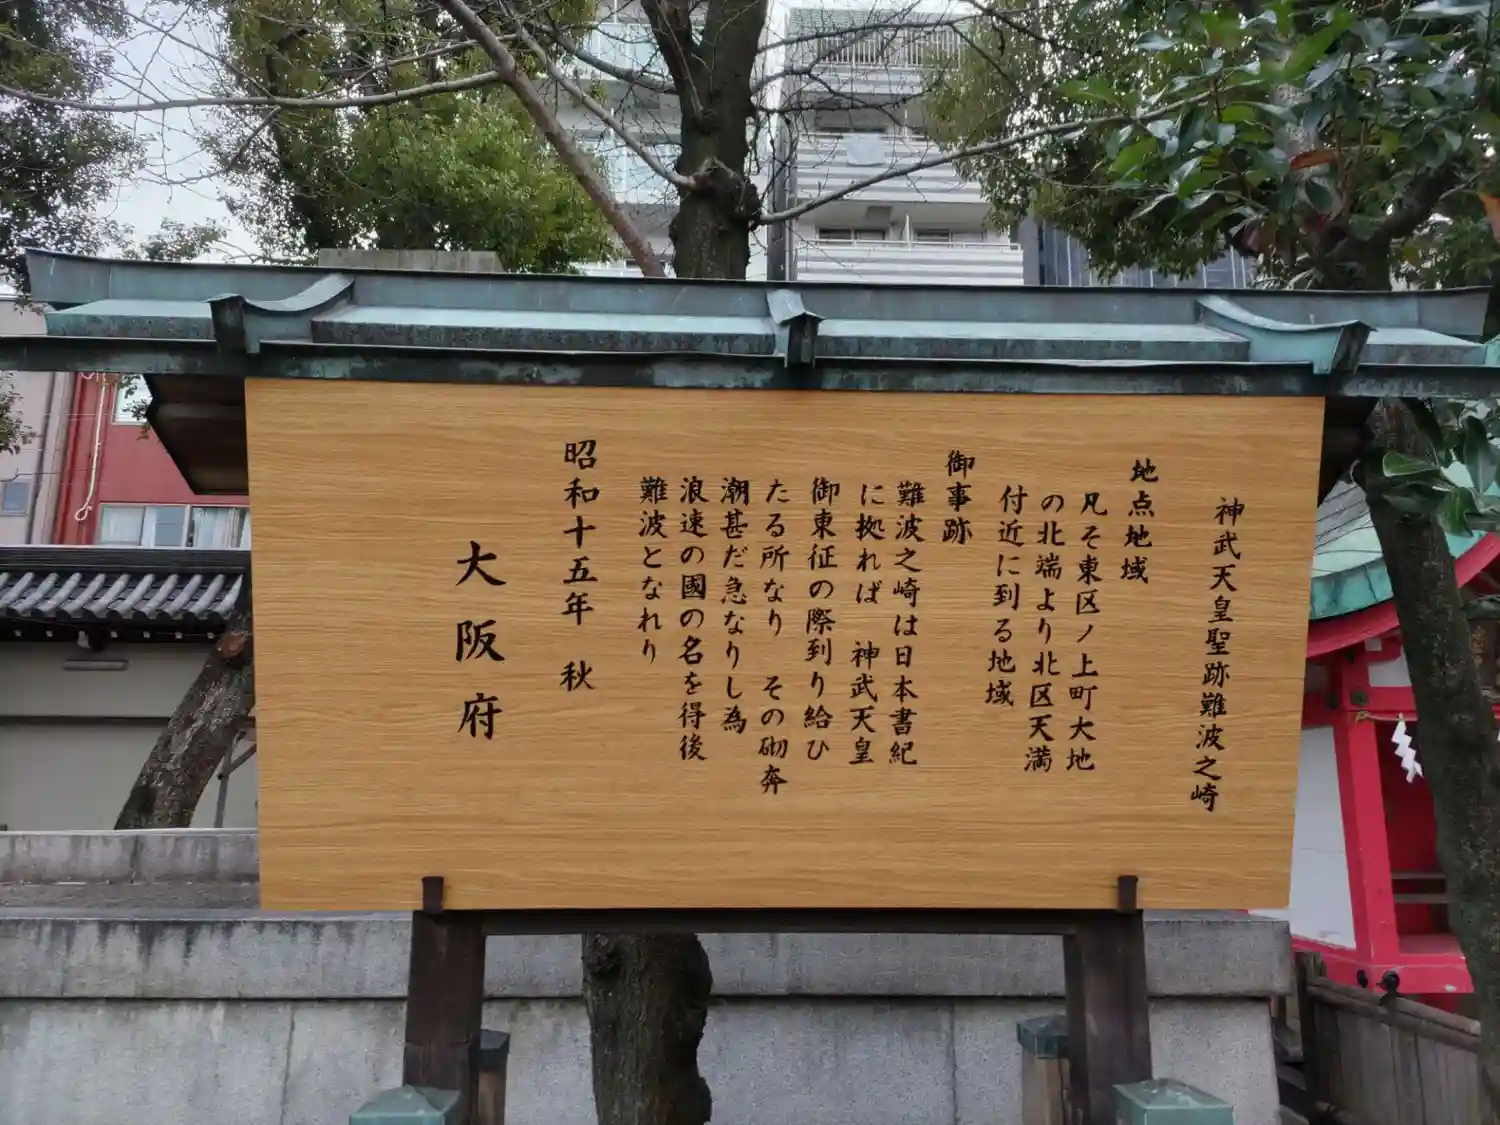 神武天皇聖跡難波之崎
地点地域
凡そ東区ノ上町大地
の北端より北区天満
付近に到る地域
御事跡
難波之崎は日本書紀
に拠れば 神武天皇
御東征の際到り給ひ
たる所なり その砌奔
潮甚だ急なりし為
浪速の國の名を得後
難波となれり
昭和十五年 秋
大阪府